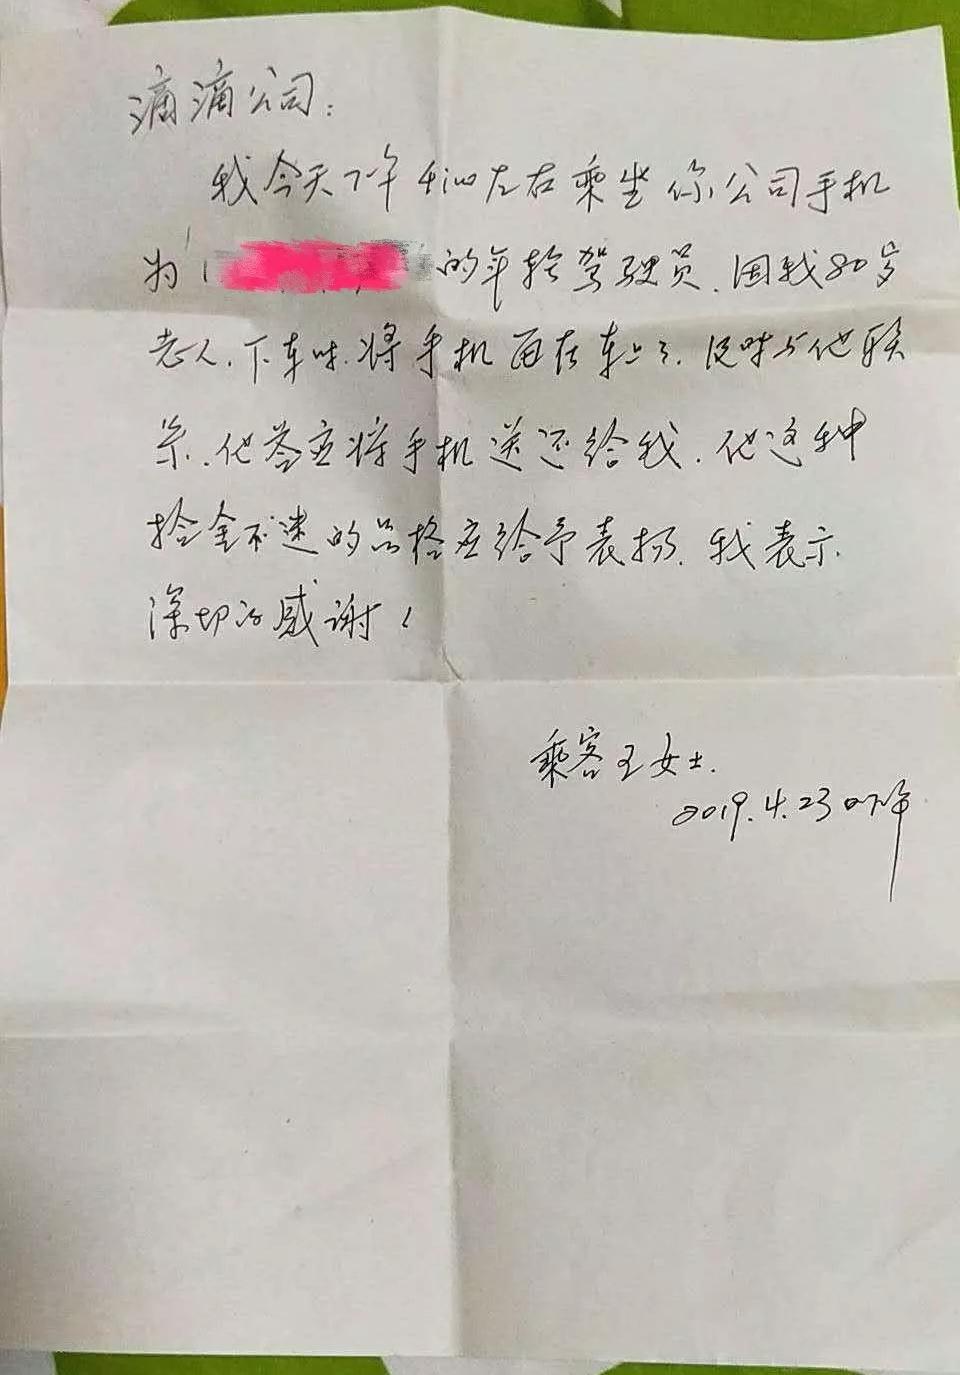 滴滴公司：
我今天下午4:00左右乘坐你公司手机
为1 的年轻驾驶员.因我80岁
老人.下车时.将手机留在车上了.及时与他联
系.他答应将手机送还给我.他这种
拾金不迷的品格应给予表扬.我表示
深切的感谢！
乘客王女士.
2019.4.23日下午